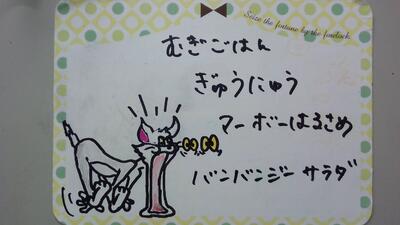 Seize the fortune by the forelock.
むぎごはん
ぎゅうにゅう
マーボーはるさめ
バンバンジーサラダ